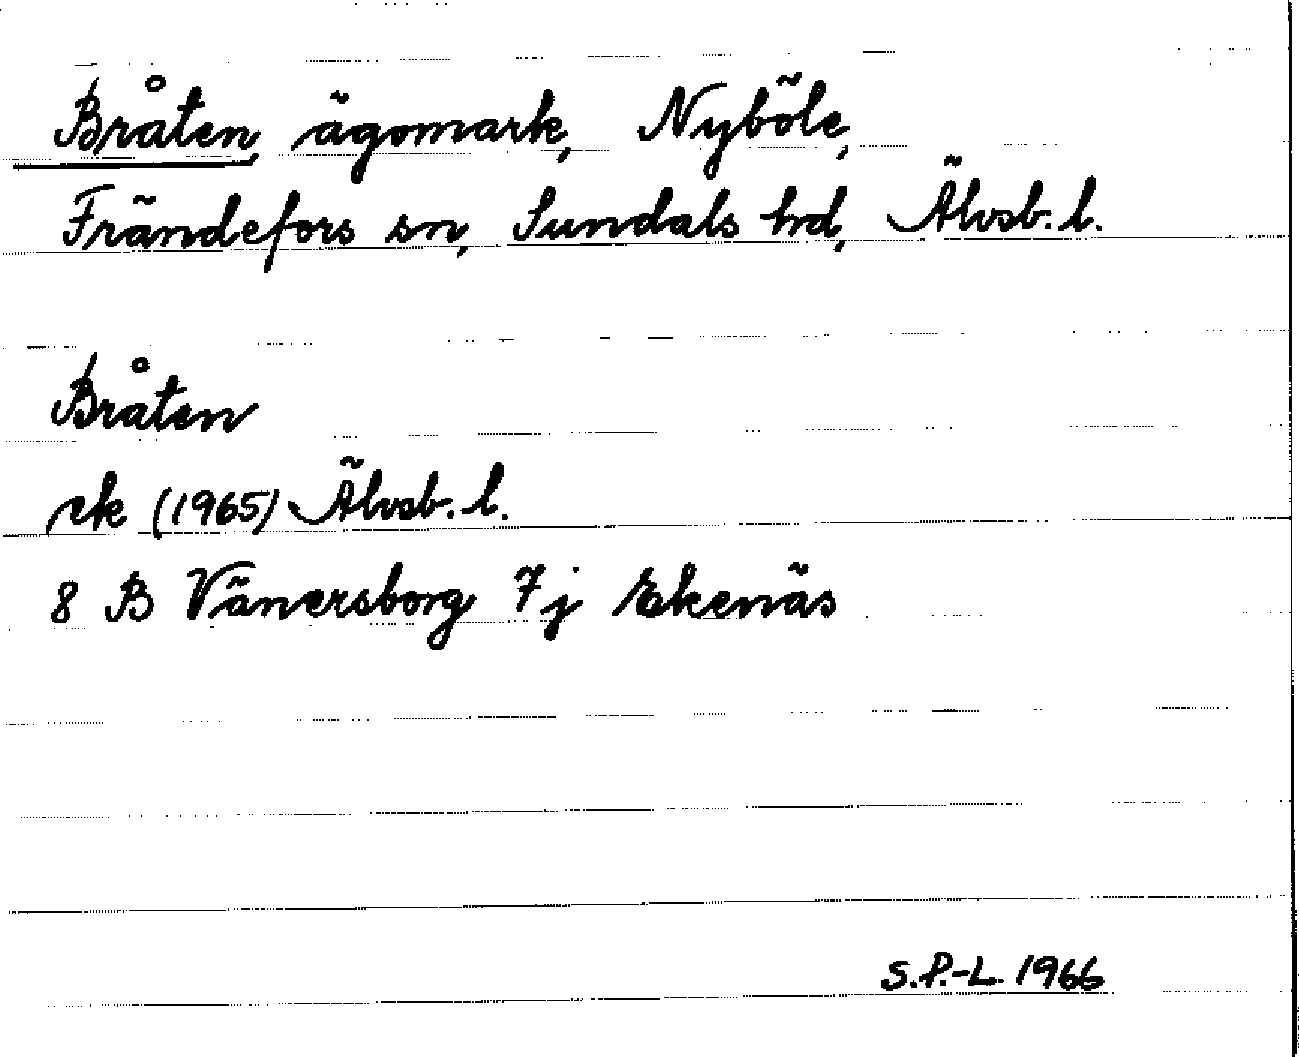 Bråten, ägomark, Nyböle,
Frändefors sn, Sundals hd, Älvsb. l.
Bråten
rk (1965) Älvsb. l.
8 B Vänersborg 7j Ekenäs
S.P.-L. 1966